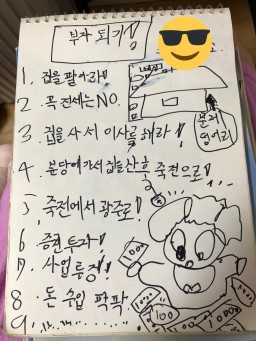 부자 되기!
1. 집을 팔아라!
2. 꼭 전세는 NO.
3. 집을 사서 이사를 해라!
문제
덩어리
4. 분당에 가서 집을 산 후 죽전으로!
5. 죽전에서 광주로!
6. 증권 투자!
7. 사업 투정!
8. 돈 수입 팍팍
9.
100
100